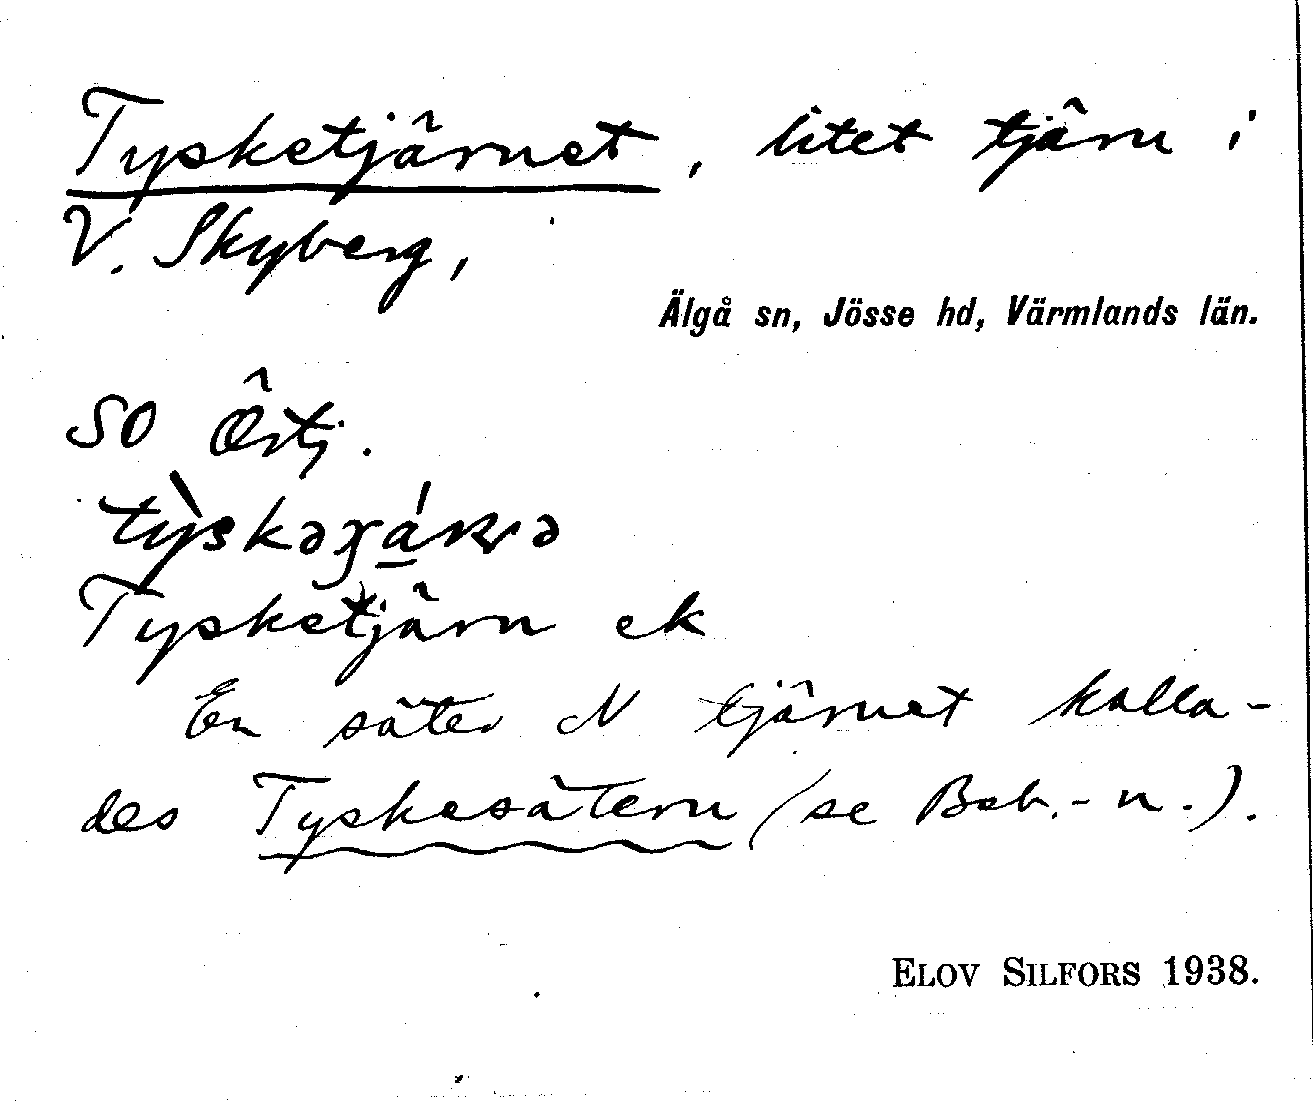 Tysketjärnet, litet tjärn i
V. Skyberg,
Älgå sn, Jösse hd, Värmlands län.
SO Örtj.
Tysketjärn ek
En säter N tjärnet kalla-
des Tyskesätern (se Beb.-n.).
ELOV SILFORS 1938.